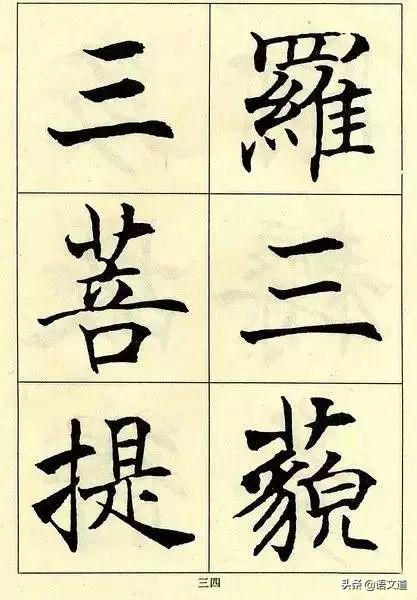 羅三藐
三菩提
三四
头条 @语文道